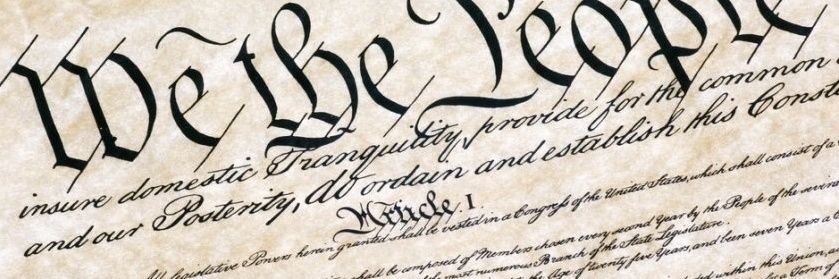 We the People
insure domestic Tranquility, provide for the common
and our Posterity, do ordain and establish this Const
Article. I.
All legislative Powers herein granted shall be vested in a Congress of the United States, which shall consist of a
shall be composed of Members chosen every second Year by the People of the sever
most numerous Branch of the State Legislature.
the Age of twenty five Years, and been seven Years a
within this Union
Term of